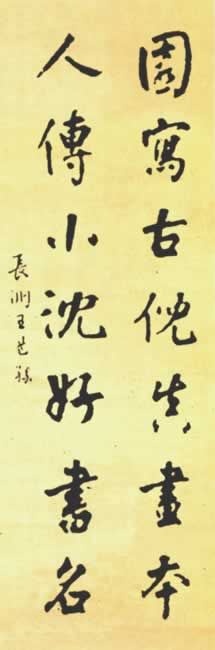 園寫古倪真畫本
人傳小沈好書名
長洲王芑孫